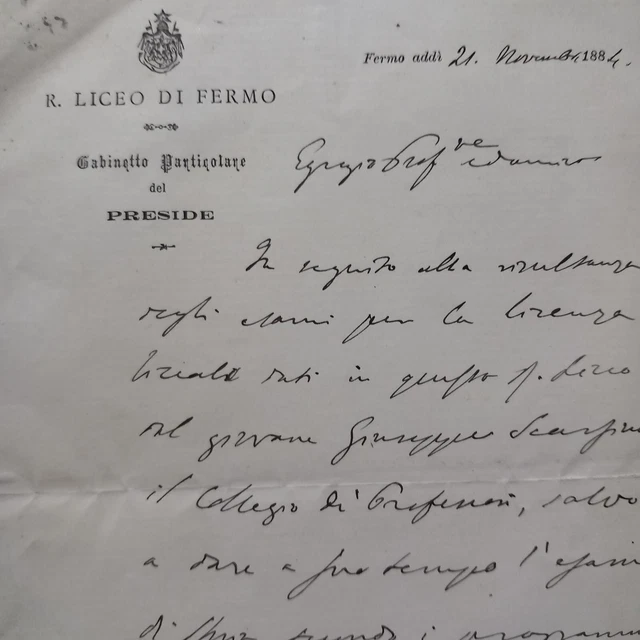 Fermo addì 21. Novembre 1884.
R. LICEO DI FERMO
Gabinetto Particolare
del
PRESIDE
Egregio Prof.re
In seguito alla risultanza
degli esami per la licenza
liceale dati in questo R. Liceo
dal giovane Giuseppe
il Collegio di Professori, salvo
a dare a suo tempo l'esame
di secondo i